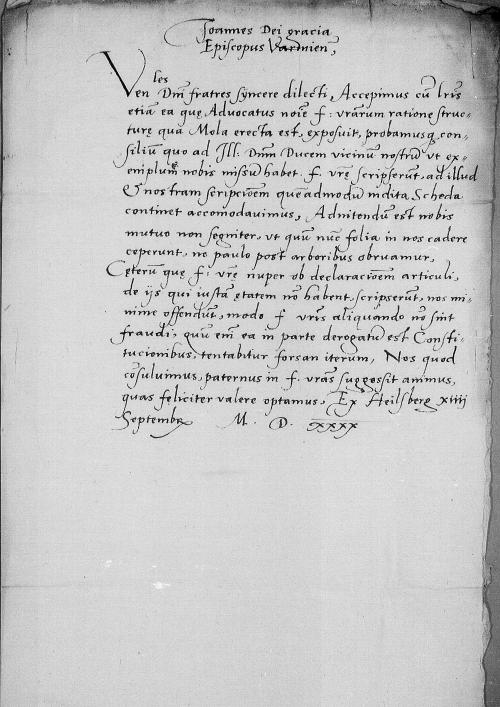 Joannes Dei gracia
Episcopus Varmien̄,
Ven les Dn̄i fratres syncere dilecti, Accepimus cū Lr̄is
etiā ea quę Advocatus noīe f: vrarum ratione struc-
turę qua Mola erecta est, exposuit, probamusq̨ con-
siliū quo ad Ill. Dn̄m Ducem vicinū nostrū vt ex-
emplum nobis missū habet f. vrę scripserūt, ad illud
& nostram scripcioēm quēadmodū indita Scheda
continet accomodauimus, Adnitendū est nobis
mutuo non segniter, vt quū nūc folia in nos cadere
ceperunt, ne paulo post arboribus obruamur,
Ceterū quę f: vrę nuper ob declaracioēm articuli,
de ijs qui iustā ętatem nō habent, scripserūt, nos mi-
nime offendūt, modo f vrīs aliquando nō sint
fraudi, quū em̄ ea in parte derogatū est Consti-
tucionibus, tentabitur forsan iterum, Nos quod
cōsuluimus, paternus in f. vrās suggessit animus,
quas feliciter valere optamus, Ex Heilsberg xiiij
Septembr M. D. XXXX